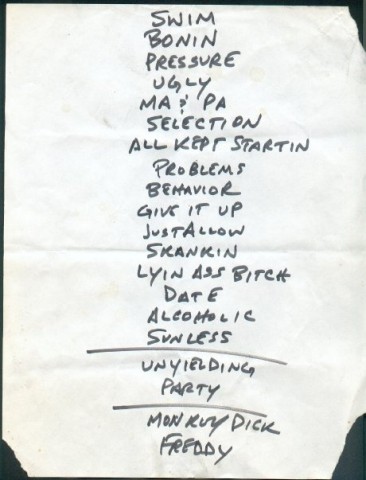 SWIM
BONIN
PRESSURE
UGLY
MA & PA
SELECTION
ALL KEPT STARTIN
PROBLEMS
BEHAVIOR
GIVE IT UP
JUST ALLOW
SKANKIN
LYIN ASS BITCH
DATE
ALCOHOLIC
SUNLESS
UNYIELDING
PARTY
MONKEY DICK
FREDDY